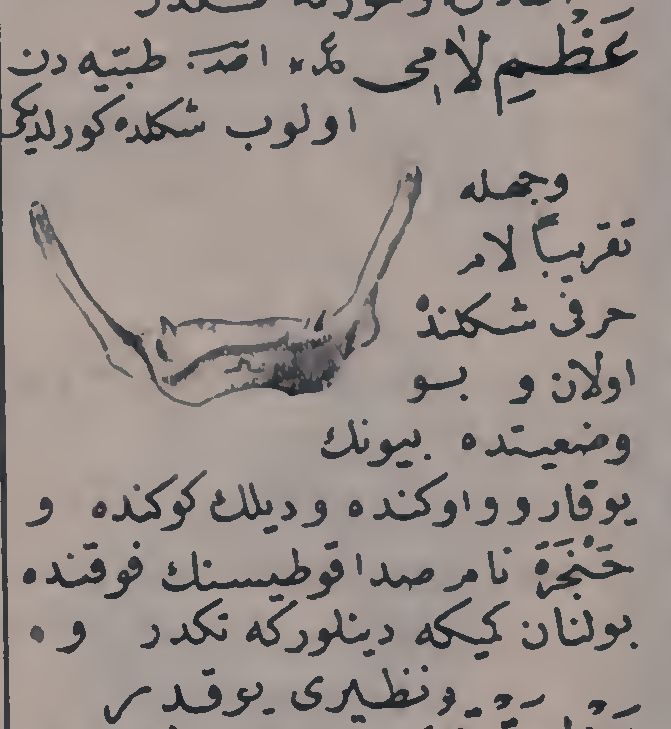 عَظْمِ لَامِی اصـ طبّیه دن
اولوب شکلده کورلدیکی
وجهله
تقریباً لام
حرفی شکلنده
اولان و بو
وضعیتده بیونك
یوقارو و اوکنده و دیلك کوکنده و
حَنْجَرَهْ نام صدا قوطیسنك فوقنده
بولنان کمیکه دینلورکه تکدر و
ونظیری یوقدر